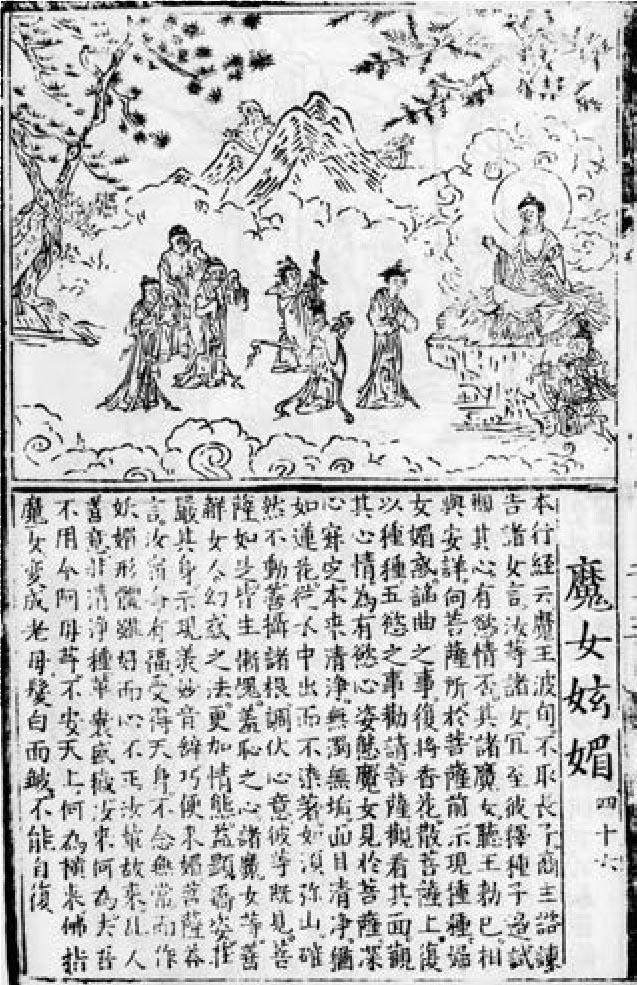 魔女妶媚 四十六
本行経云魔王波旬不取長子商主諮諫
告諸女言汝等諸女冝至彼釋種子邊試
觀其心有慾情否其諸魔女聽王勅已相
與安詳向菩薩所於菩薩前示現種種婦
女媚惑謟曲之事復將香花散菩薩上復
以種種五慾之事勸請菩薩觀看其面觀
其心情為有慾心姿態魔女見於菩薩深
心寂定本来清淨無濁無垢面目清净猶
如蓮花從水中出而不染著如湏弥山確
然不動善攝諸根調伏心意彼等既見菩
薩如是皆生慚愧羞恥之心諸魔女等善
觧女人幻惑之法更加情態益顯姿
嚴其身示現美妙音辞巧便来媚菩薩菩
言汝有福受得天身不念無常而作
妖媚形體雖好而心不正汝故来乱人
善意非清净種革囊盛穢汝来何為去吾
不用尔阿母等不安天上何為橫来佛指
魔女变成老母髮白面皺不能自復